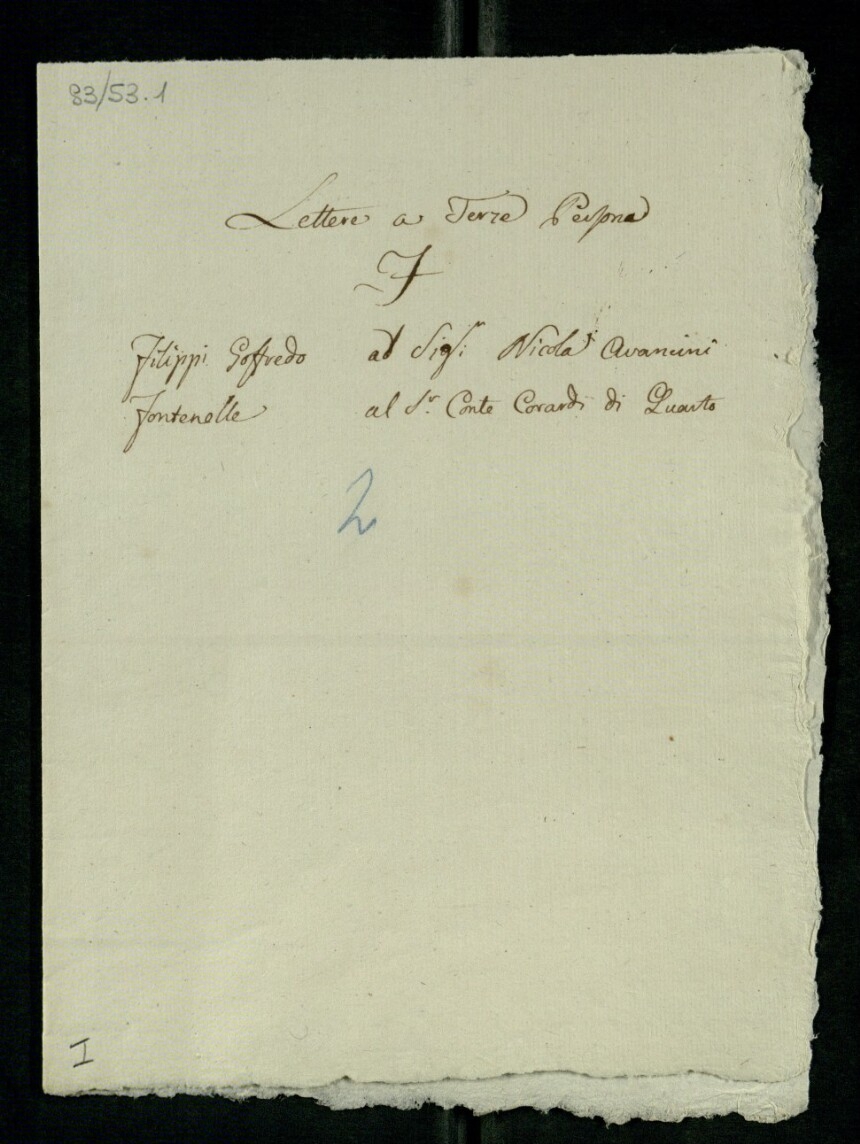 83/53.1
Lettere a Terze Persone
F
Filippi Goffredo al Sig.r Nicola Avancini
Fontenelle al S.r Conte Corardi di Quarto
2
I